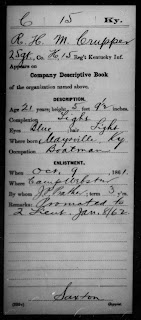 C 15 Ky.
R. H. M. Crupper
2 Sgt., Co. H, 15 Reg't Kentucky Inf.
Appears on
Company Descriptive Book
of the organization named above.
DESCRIPTION.
Age 21 years; height 5 feet 9½ inches.
Complexion Light
Eyes Blue Light
Where born Claysville, Ky
Occupation Boatman
ENLISTMENT.
When Oct. 9, 1861.
Where Camp Webster
By whom term 3 y'rs.
Remarks: Promoted to
2 Lieut. Jan. 8/62.
Saxton
Copyist.